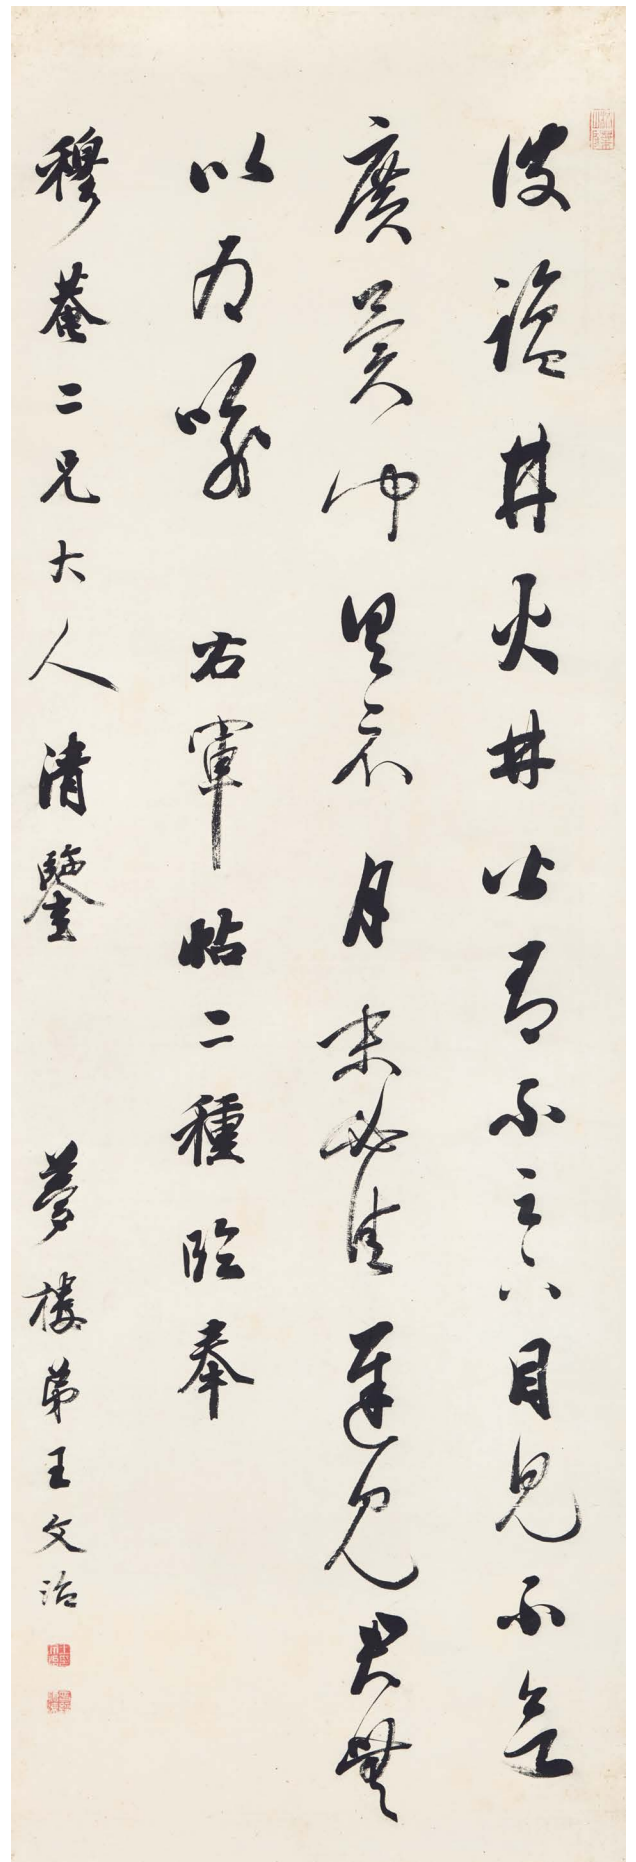 彼鹽井火井皆有不足下目見不為
廣異聞具示 月末必往遲見君無
以為喻 右軍帖二種臨奉
穆菴二兄大人清鑒 夢樓弟王文治